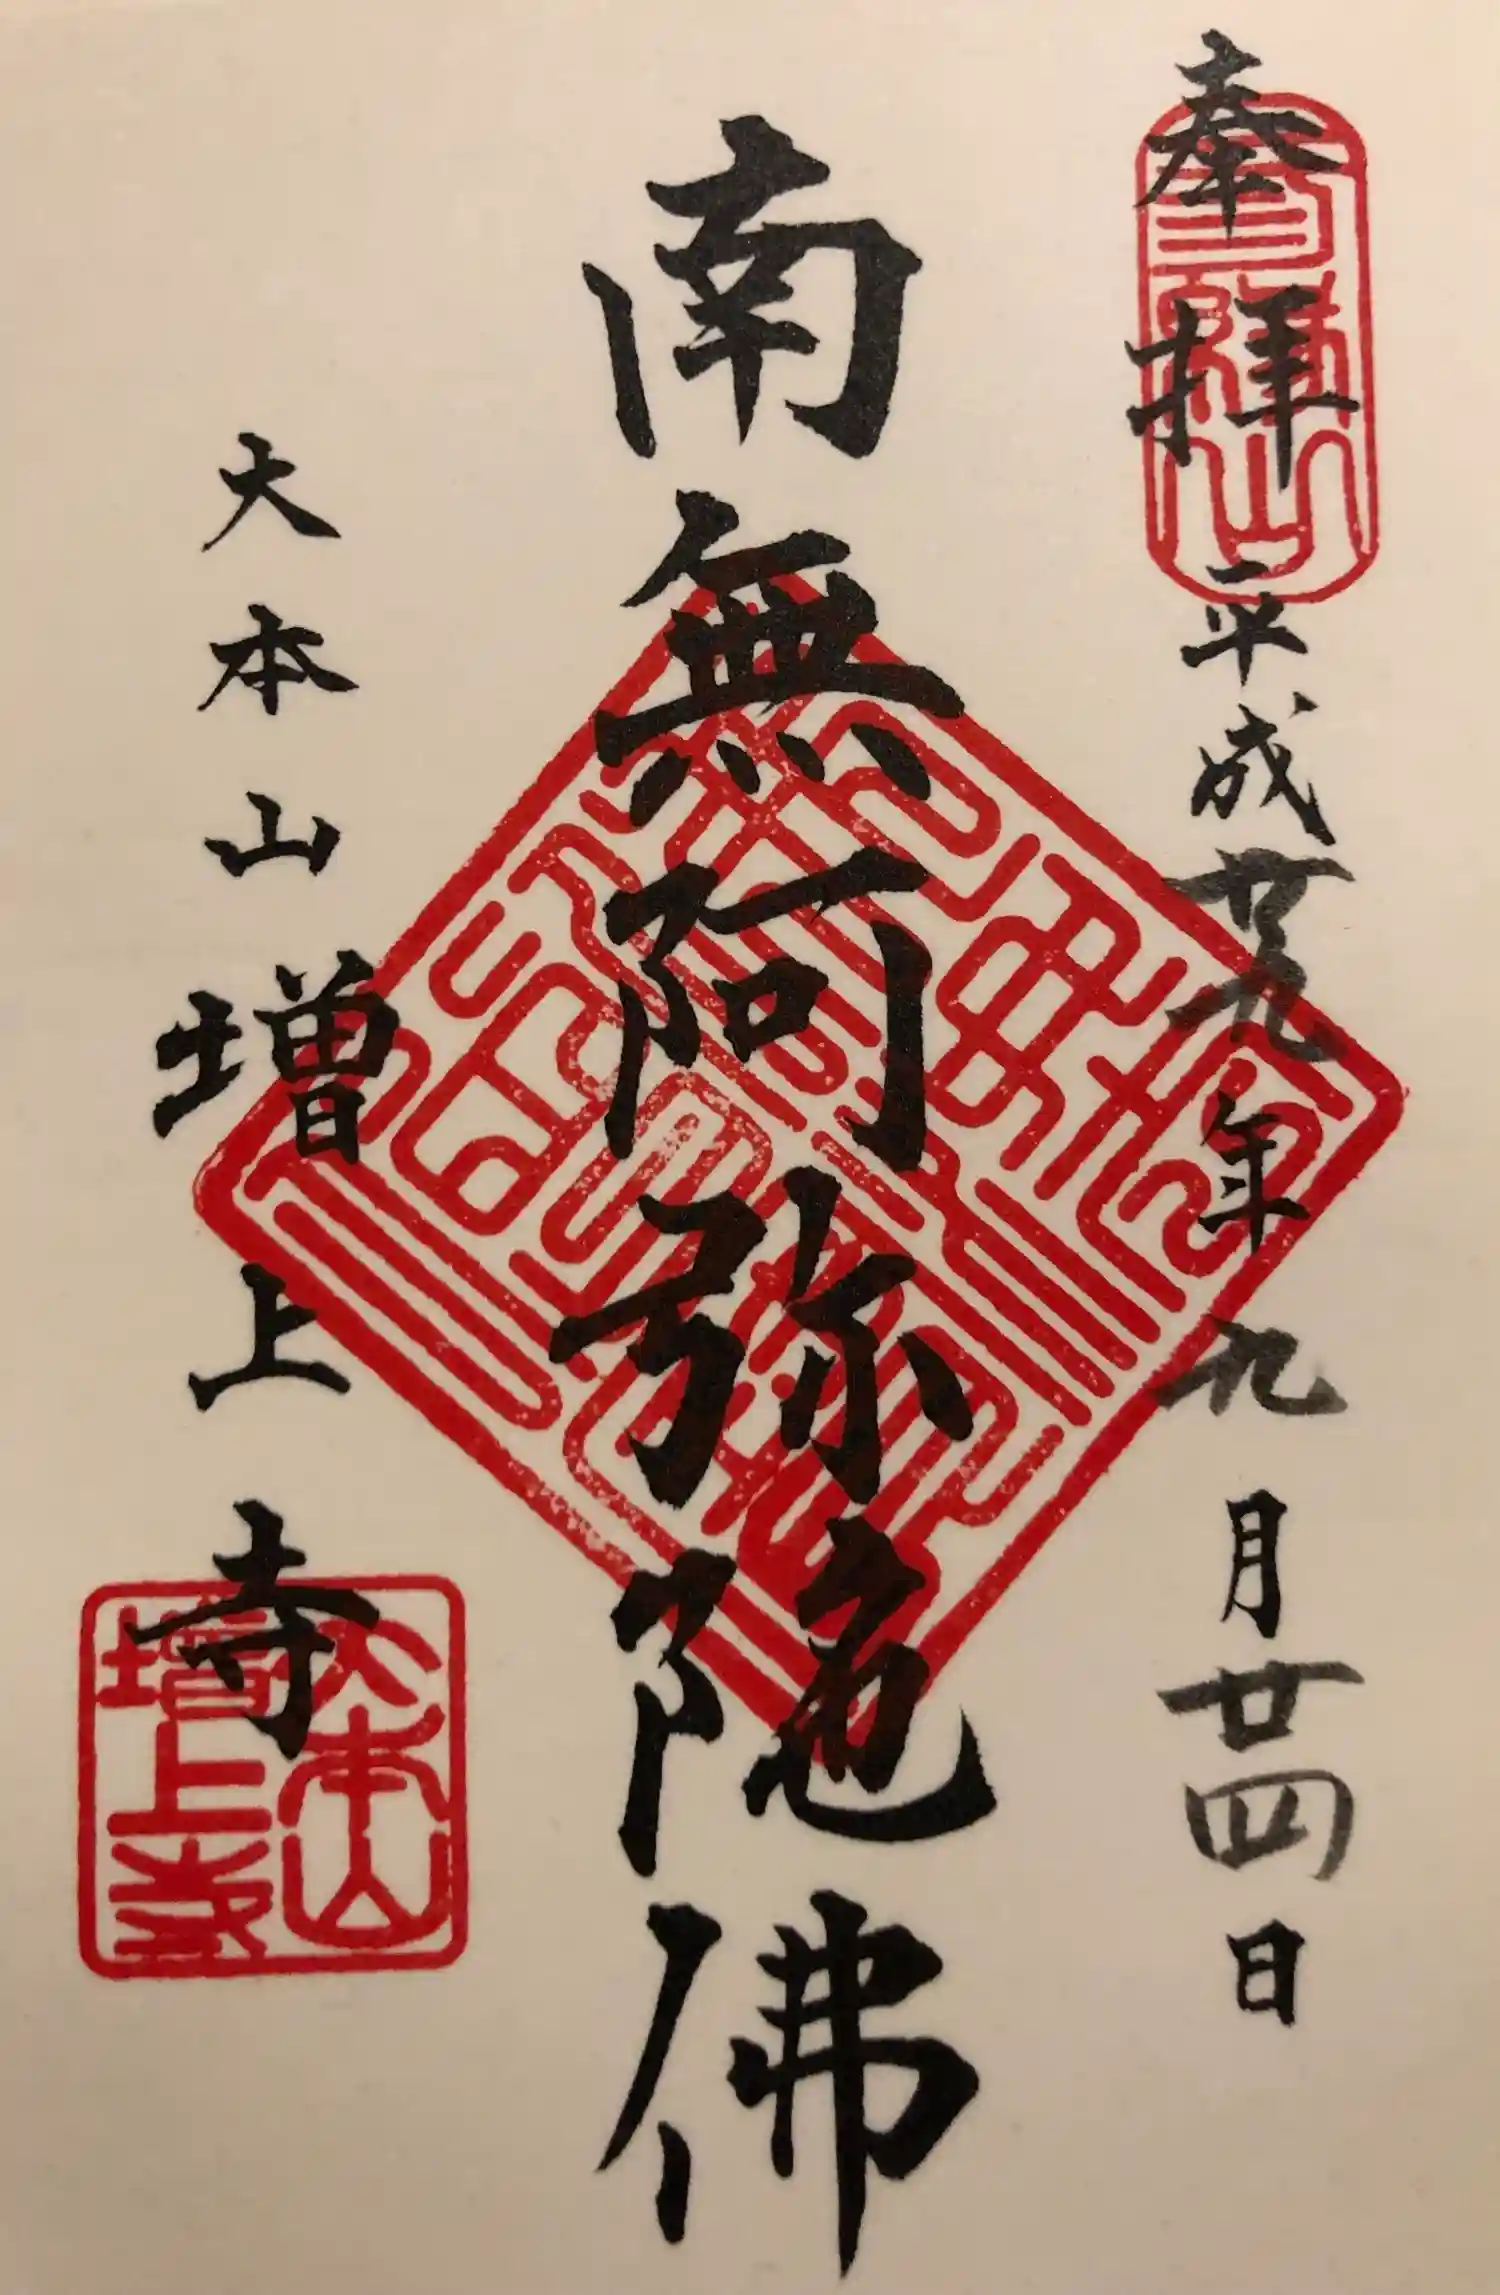 奉拝
平成廿九年九月廿四日
南無阿弥陀佛
大本山増上寺
大本山
増上寺